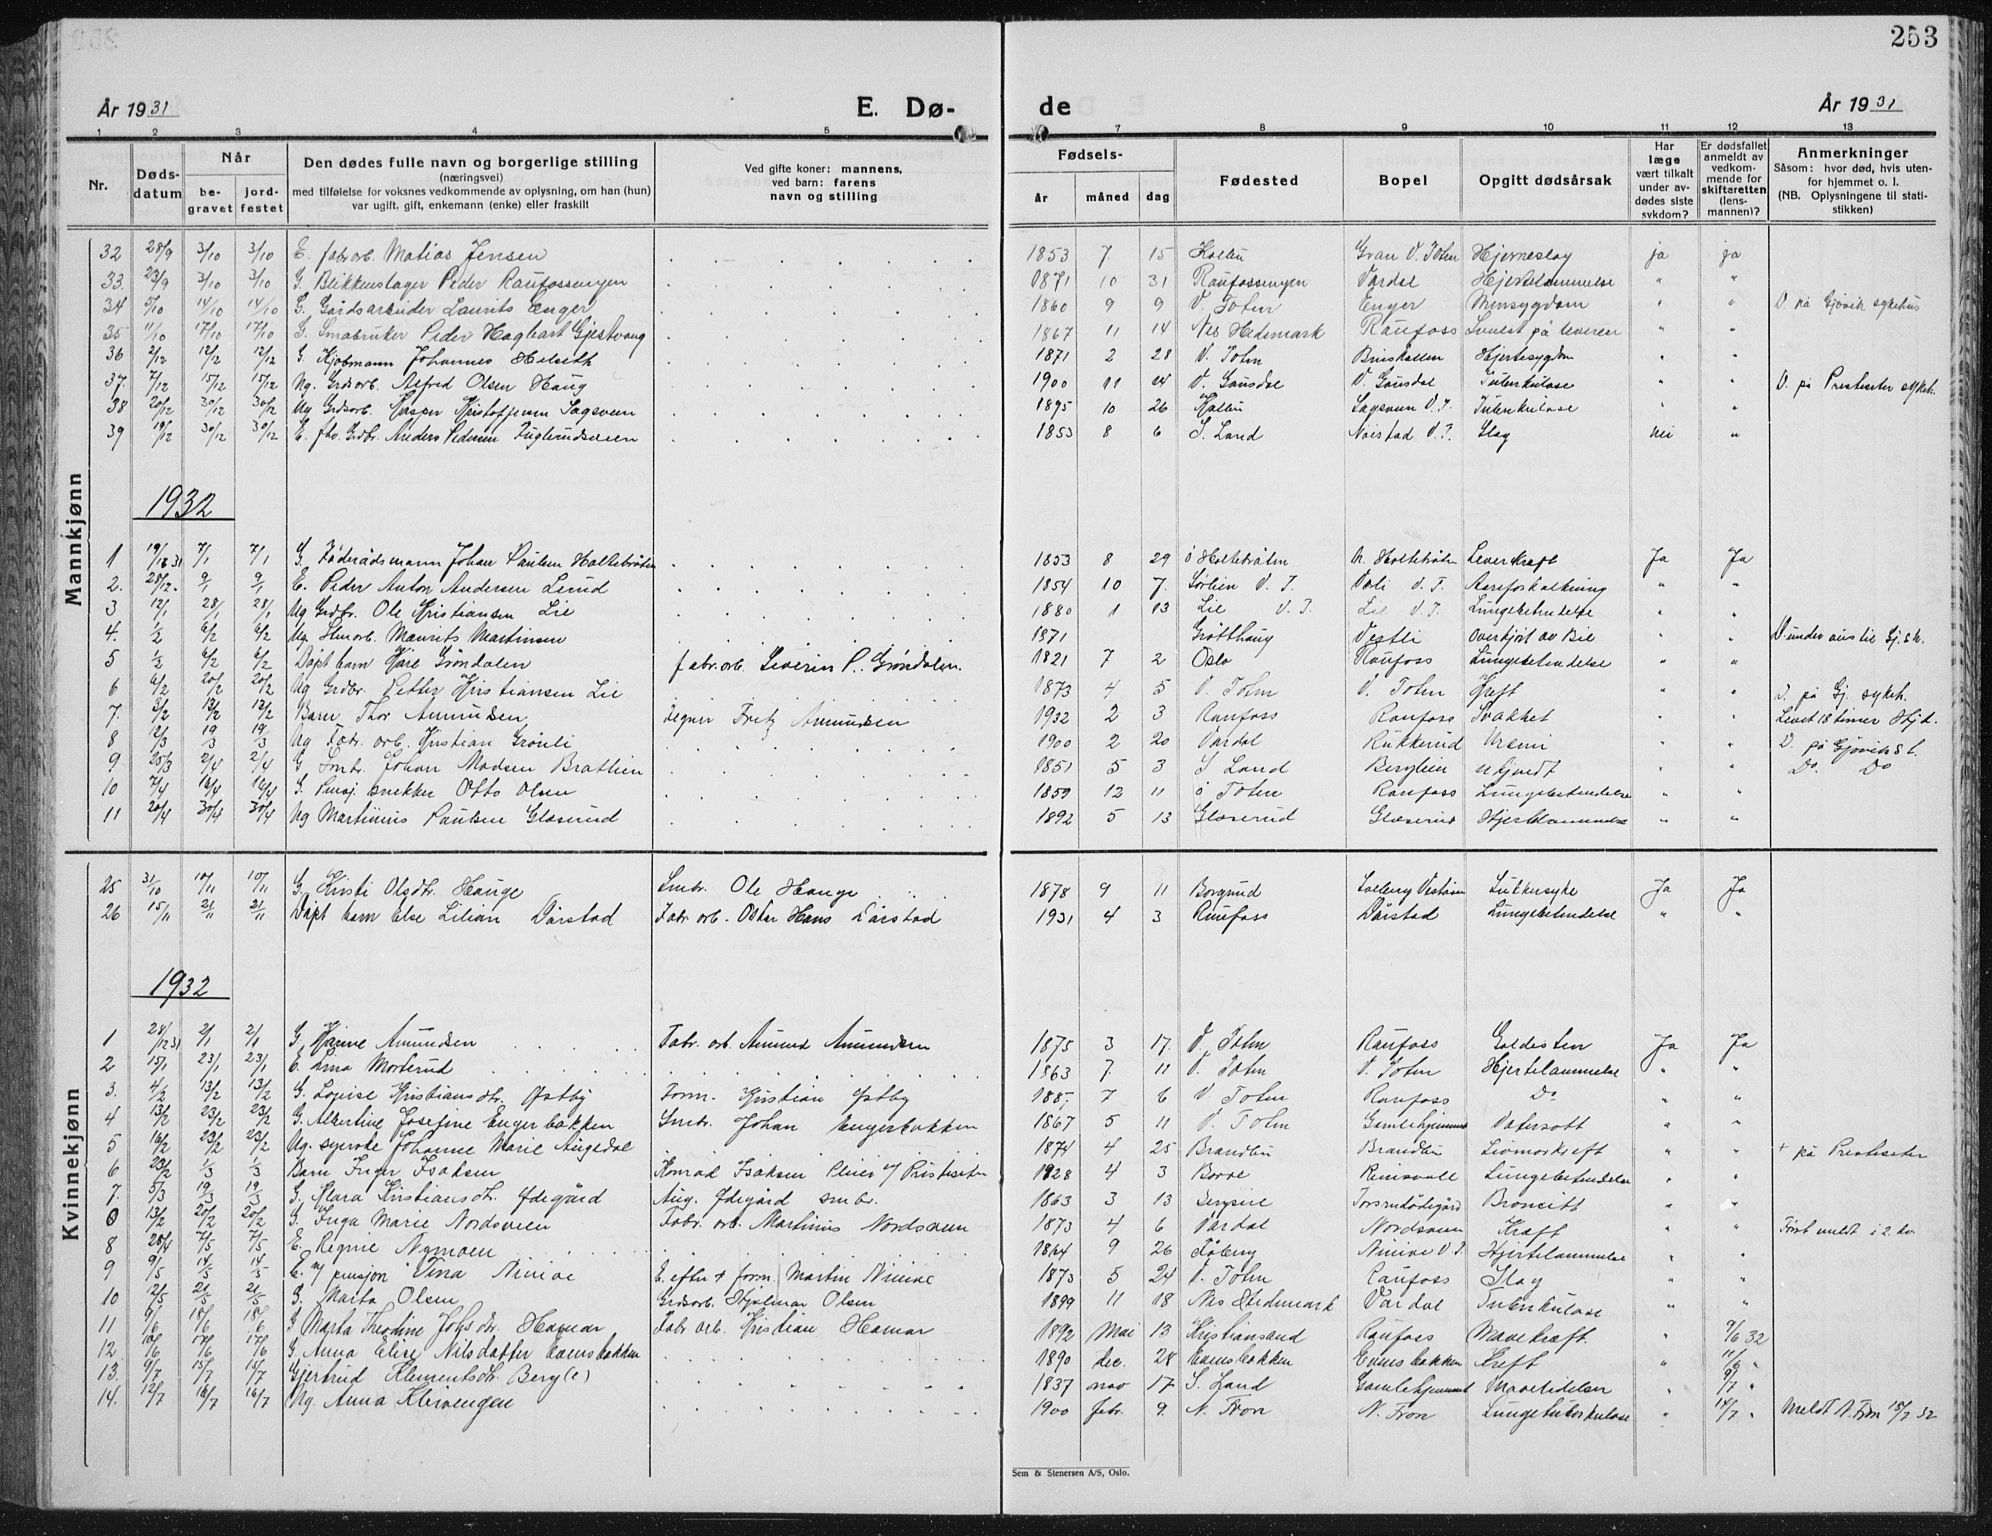 253
År 1931 E. Dø- de År 1931
1 2 3 4 5 7 8 9 10 11 12 13
Nr. Døds-datum Når be-gravet jord-festet Den dødes fulle navn og borgerlige stilling (næringsvei) med tilføielse for voksnes vedkommende av oplysning, om han (hun) var ugift, gift, enkemann (enke) eller fraskilt Ved gifte koner: mannens, ved barn: farens navn og stilling Fødsels- år måned dag Fødested Bopel Opgitt dødsårsak Har læge vært tilkalt under av-dødes siste sykdom? Er dødsfallet anmeldt av vedkom-mende for skifteretten (lens-mannen)? Anmerkninger Såsom: hvor død, hvis uten-for hjemmet o. l. (NB. Oplysningene til stati-stikken)
Mannkjønn
32 28/9 3/10 3/10 E. fabr.orb. Matias Jensen 1853 7 15 Kolbu Gran V. Toten Hjerneslag ja ja
33. 23/9 3/10 3/10 G. Blikkenslager Peder Raufossengen 1871 10 31 Raufossengen Vardal Hjertelammelse " "
34 5/10 14/10 14/10 G. Gårdsarbeider Laurits Enger 1860 9 9 V. Toten Enger " " D. på Gjøvik sykehus
35 11/10 17/10 17/10 G. Småbruker Peder Hagbart Gjestvang 1867 11 14 Nes Hedemark Raufoss Svulst på leveren " "
36 2/12 12/12 12/12 G. Kjøbmann Johannes Helseth 1871 2 28 V. Toten Hjertesygdom " "
37. 7/12 15/12 15/12 Ug. Grdsorb. Alfred Olsen Haug 1900 11 24 V. Gausdal V. Gausdal Tuberkulose " " D. på Presteseter sykeh.
38 20/12 30/12 30/12 Ug Grdsorb. Kasper Kristoffersen Sagsveen 1895 10 26 Kolbu Sagsveen V.T. Tuberkulose " "
39 19/12 30/12 30/12 E. fhv. Grdbr. Anders Pedersen Fuglerudsveen 1853 8 6 S. Land V.T. Slag nei "
1932
1 19/12 31 7/1 7/1 G. Føderådsmann Johan Paulsen Holtebråten 1853 8 29 ø Holtebråten N. Holtebråten Leverkræft Ja Ja
2. 28/12. 9/1 9/1 E. Peder Anton Andersen Lerud 1854 10 7. Sørlien V. T. V. T. Aareforkalkning " "
3 12/1 28/1 28/1 Ug Grdbr. Ole Kristiansen Lie 1880 1 13 Lie V. T. Lie V. T. Lungebetendelse " "
4. 1/2 6/2 6/2 Ug. Maurits Martinsen 1871 Grøtthaug Vestli Overkjørt av Bil " "
5 1/2 6/2 6/2 Døpt barn Kåre Grøndalen fabr.orb. Severin P. Grøndalen. 1921 7 2 Oslo Raufoss Lungebetendelse " "
6 6/2 20/2 20/2 Ug Grdbr. Petter Kristiansen Lie 1873 4 5 V. Toten V. Toten Kreft " " D. på Gj. sykeh.
7. 3/2 13/2 13/2 Barn Thor Amundsen Tegner Fritz Amundsen 1932 2 3 Raufoss Raufoss Svakhet " " Levet 18 timer Hjd.
8 12/3 19/3 19/3 Ug Fabr. orb. Kristian Grønli 1900 2 20 Vardal Rukkerud Uremi " " D. på Gjøvik S.
9 25/3 2/4 2/4 G Smbr. Johan Madsen Brathen 1851 5 3 S Land Berglien " " Do. Do
10 7/4 16/4 16/4 G. Pensj. snekker Otto Olsen 1859 12 11 ø Toten Raufoss Lungebetendelse " "
11 20/4 30/4 30/4 Ug Martinius Paulsen Glæserud 1892 5 13 Glæserud Glæserud Hjertelammelse " "
Kvinnekjønn
25 31/10 10/11 10/11 G. Kristi Olsdtr. Hauge Smbr. Ole Hauge 1878 9 11 Borgund Sukkersyke Ja Ja
26 15/11 21/11 21/11 Døpt barn Else Lilian Dårstad Fabr. orb. Oskar Hans Dårstad 1931 4 3 Raufoss Dårstad Lungebetendelse " "
1932
1 28/12 31 2/1 2/1 G. Karine Amundsen Fabr. orb. Amund Amundsen 1875 3 17. V. Toten Raufoss Galdesten Ja Ja
2 15/1 23/1 23/1 E. Lina Morterud 1863 7 11 V. Toten V. Toten Hjertelammelse " "
3. 4/2 13/2 13/2 G. Lovise Kristiansdtr. Østby Form. Kristian Østby 7 6 V Toten Raufoss Do " "
4 13/2 23/2 23/2 G. Albertine Josefine Engerbakken Smbr. Johan Engerbakken 1867 5 11 V. Toten Gamlehjemmet Vatersott " "
5 16/2 23/2 23/2 Ug. syerske Johanne Marie Augedal 1874 4 25 Brandbu Brandbu Livmorkreft " " + på Presteseter
6 23/2 1/3 1/3 Barn Inger Isaksen Konrad Isaksen 1928 4 3 Borre Reinsvoll Lungebetendelse " "
7. 5/3 19/3 19/3 G. Klara Kristiansdtr. Ødegård Aug. Ødegård smbr. 1863 3 13 Broncitt " "
0 13/2 20/2 20/2 G. Inga Marie Nordsveen Fabr. orb. Martinus Nordsveen 1873 4 6 Vardal Nordsveen Kræft " " Først meldt i 2. kv.
8 28/4 7/5 7/5 E. Regine Nymoen 1864 9 26 Fåberg Ninive V.T. Hjertelammelse " "
9 9/5 14/5 14/5 E. m/ pensjon Tina Ninive E. efter + form. Martin Ninive 1873 5 24 V. Toten Raufoss Slag " "
10 12/5 21/5 21/5 G. Marta Olsen Grdsorb. Hjalmar Olsen 1899 11 18 Nes Hedemark Vardal Tuberkulose " "
11 9/6 18/6 18/6 G Marta Teodine Johsdtr. Hamar Fabr orb. Kristian Hamar 1892 Mai 13 Kristiansand Raufoss Mavekræft. " 9/6 32
12 10/6 17/6 17/6 G. Anna Elise Nilsdatter Evensbakken 1890 dec. 28 Evensbakken Evensbakken Kreft " 11/6 "
13. 9/7 15/7 15/7 Gjertrud Klementsdtr. Berg (e) 1837 nov 17 S. Land Gamlehjemmet Mavelidelser 9/7 "
14. 12/7 16/7 16/7 Ug. Anna Kleivengen 1900 febr. 9. N. Fron N. Fron Lungetuberkulose " 14/7 " Meldt N. Fron 15/7 32
Sem & Stenersen A/S, Oslo.